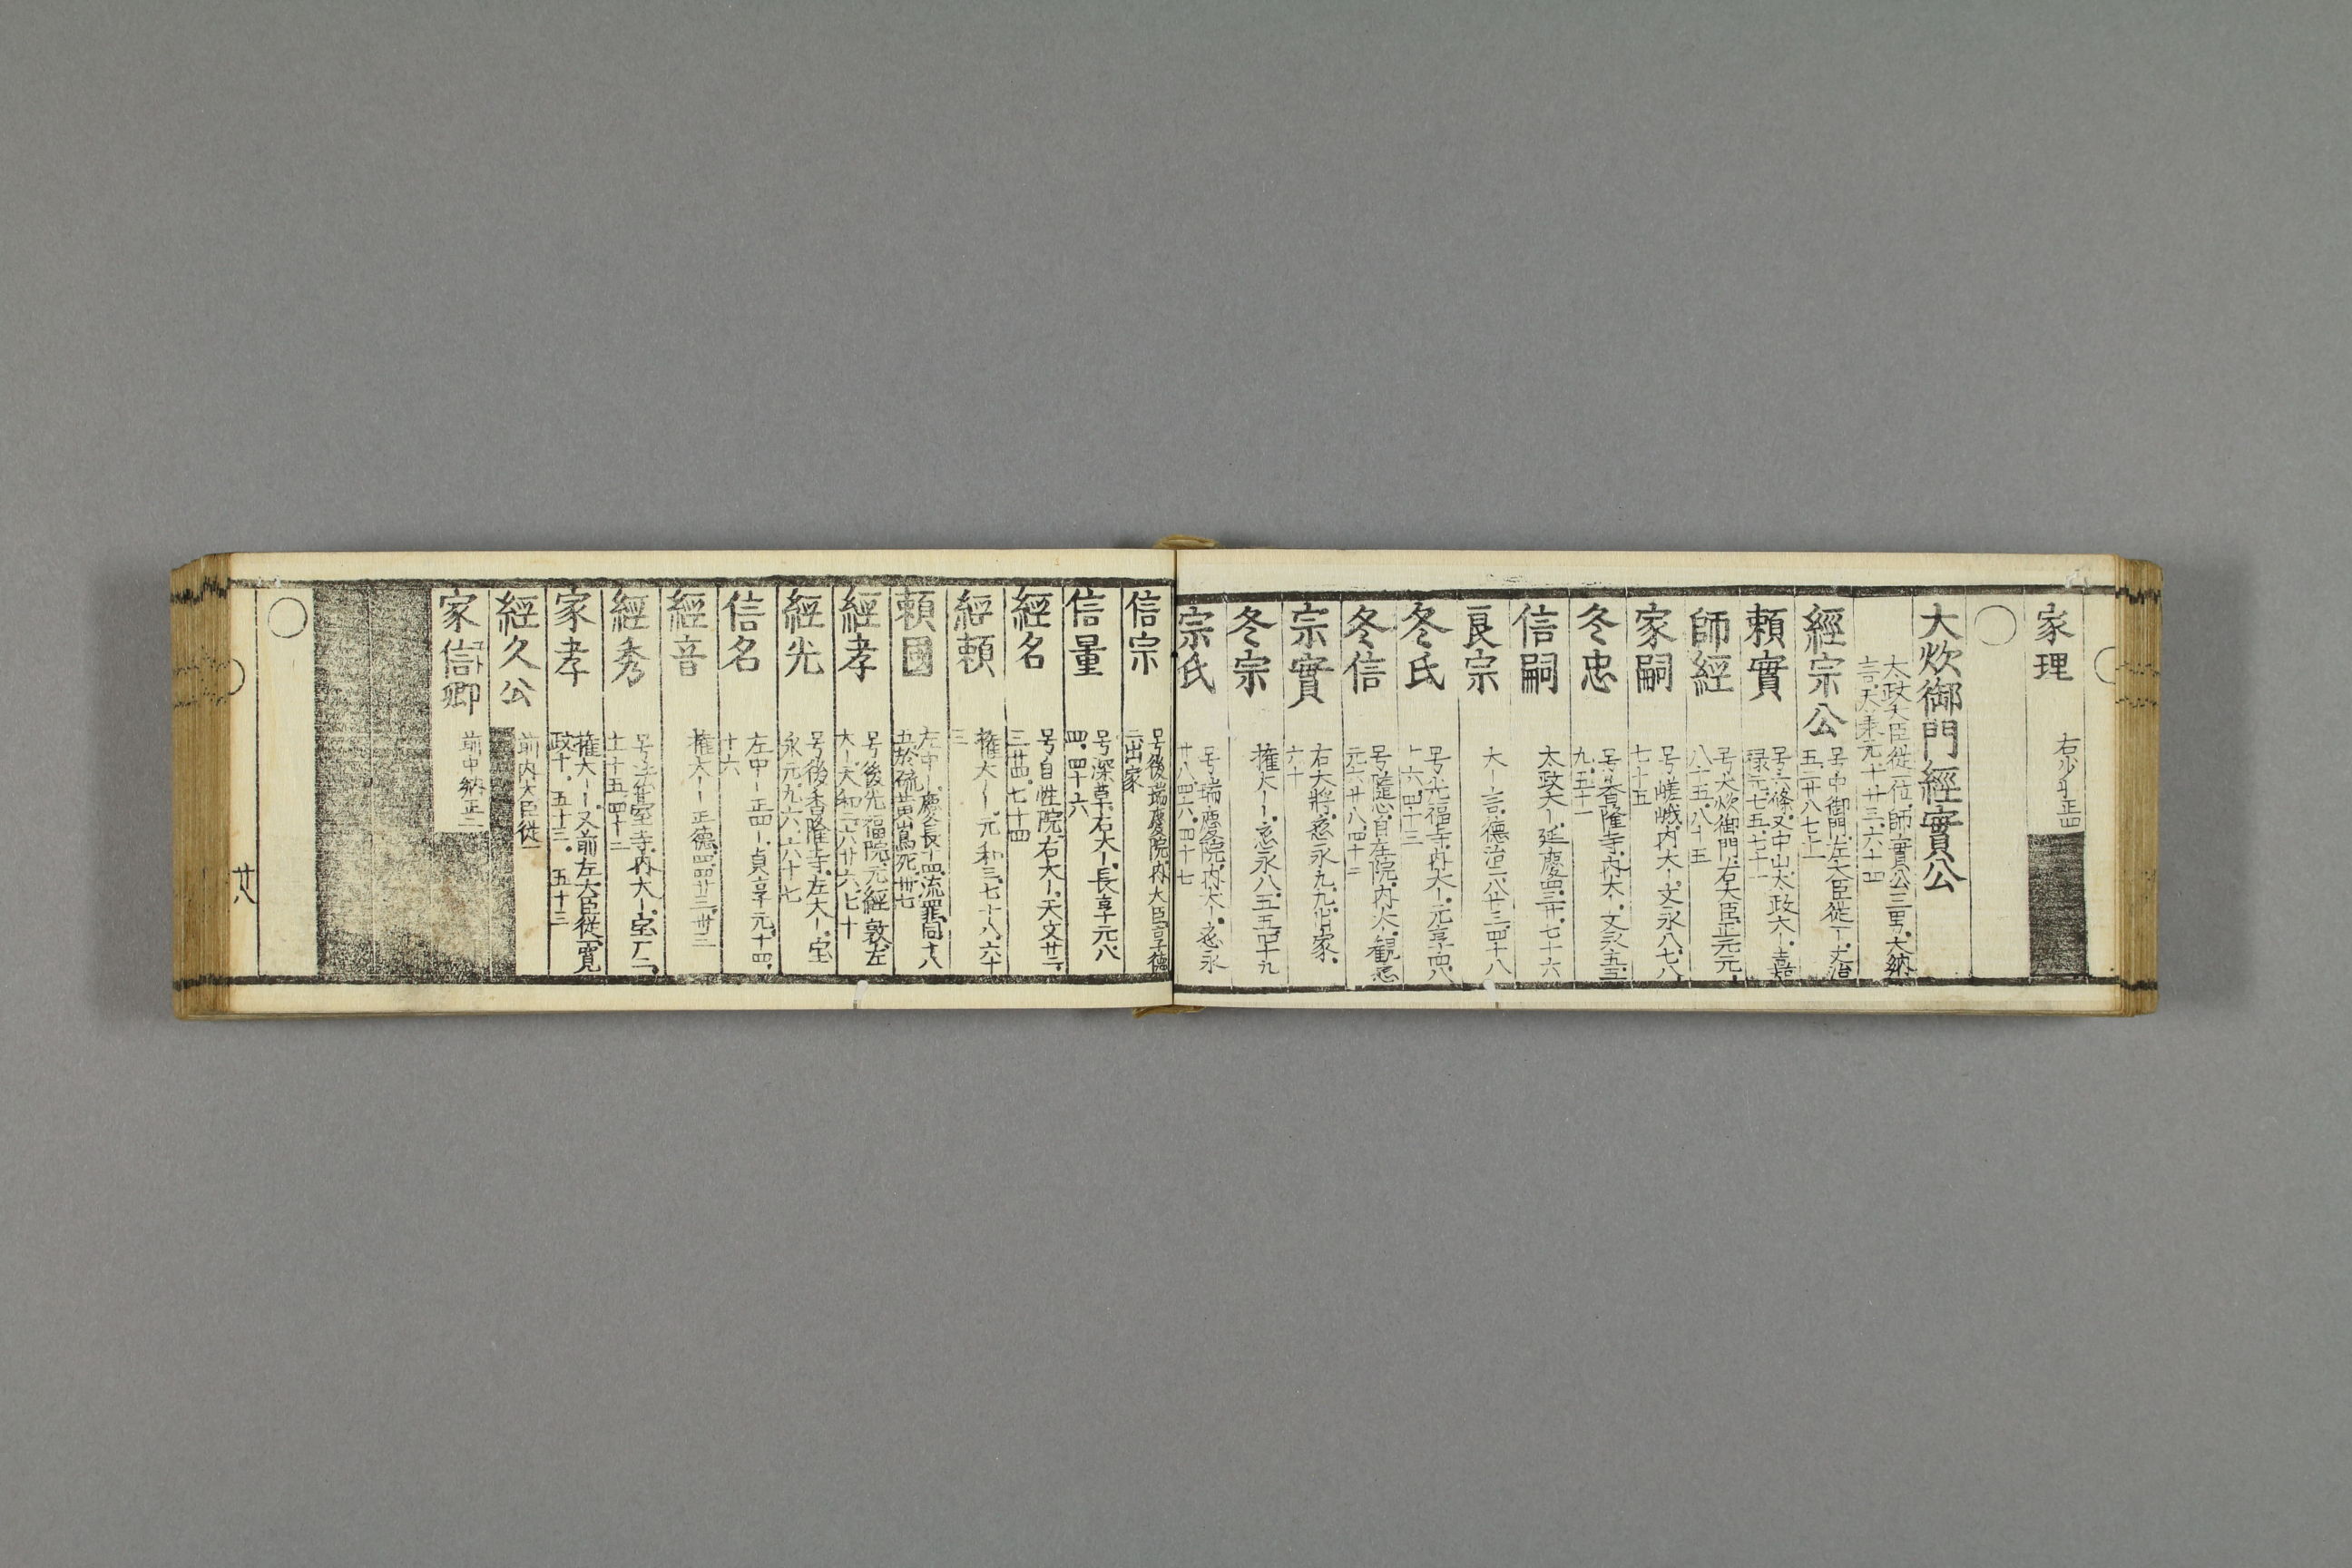 家理
右少丬正四
大炊御門經實公
太政大臣従一位師實公三男大納
言天承元十廿三六十四
經宗公
号中御門左大臣従一文治
五二廿八七十一
賴實
号六條又中山太政大ー嘉
禄元七五七十一
師經
号大炊御門右大臣正元元
八十五八十五
家嗣
号嵯峨内大ー文永八七八
七十五
冬忠
号香隆寺内大ー文永五五
九五十一
信嗣
太政大ー延慶四三廿七十六
良宗
大ー言德治二八廿三四十八
冬氏
号光福寺内大ー元亨四八
十六四十三
冬信
号隨心自在院内大ー観應
元六廿八四十二
宗實
右大將應永九九出家
六十
冬宗
権大ー應永八五五四十九
宗氏
号瑞慶院内大ー應永
廿八四六四十七
信宗
号後瑞慶院内大臣享德
二出家
信量
号深草右大ー長享元八
四四十六
經名
号自性院右大ー天文廿二
三廿四七十四
經賴
権大ー元和三七十八六十
三
賴國
左中ー慶長十四流罪同十八
五於硫黄嶌死卅七
經孝
号後光福院元經敦左
大ー天和二六廿六七十
經光
号後香隆寺左大ー宝
永元九六六十七
信名
左中ー正四ー貞享元十四
十六
經音
権大ー正德四四廿三卅三
經秀
内大ー宝厂二
十二十五四十二
家孝
権大ー又前左大臣従一寛
政十一五十三五十三
經久公
前内大臣従一
家信卿
前中納正二
廿八